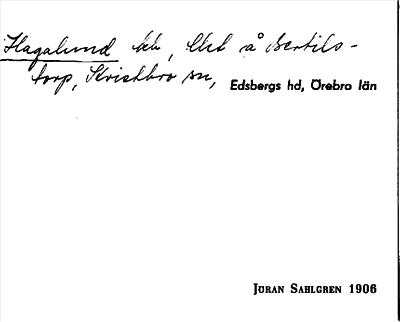 Hagalund lbh, Ebel å Bertils-
torp, Kvistbro sn, Edsbergs hd, Örebro län
JÖRAN SAHLGREN 1906